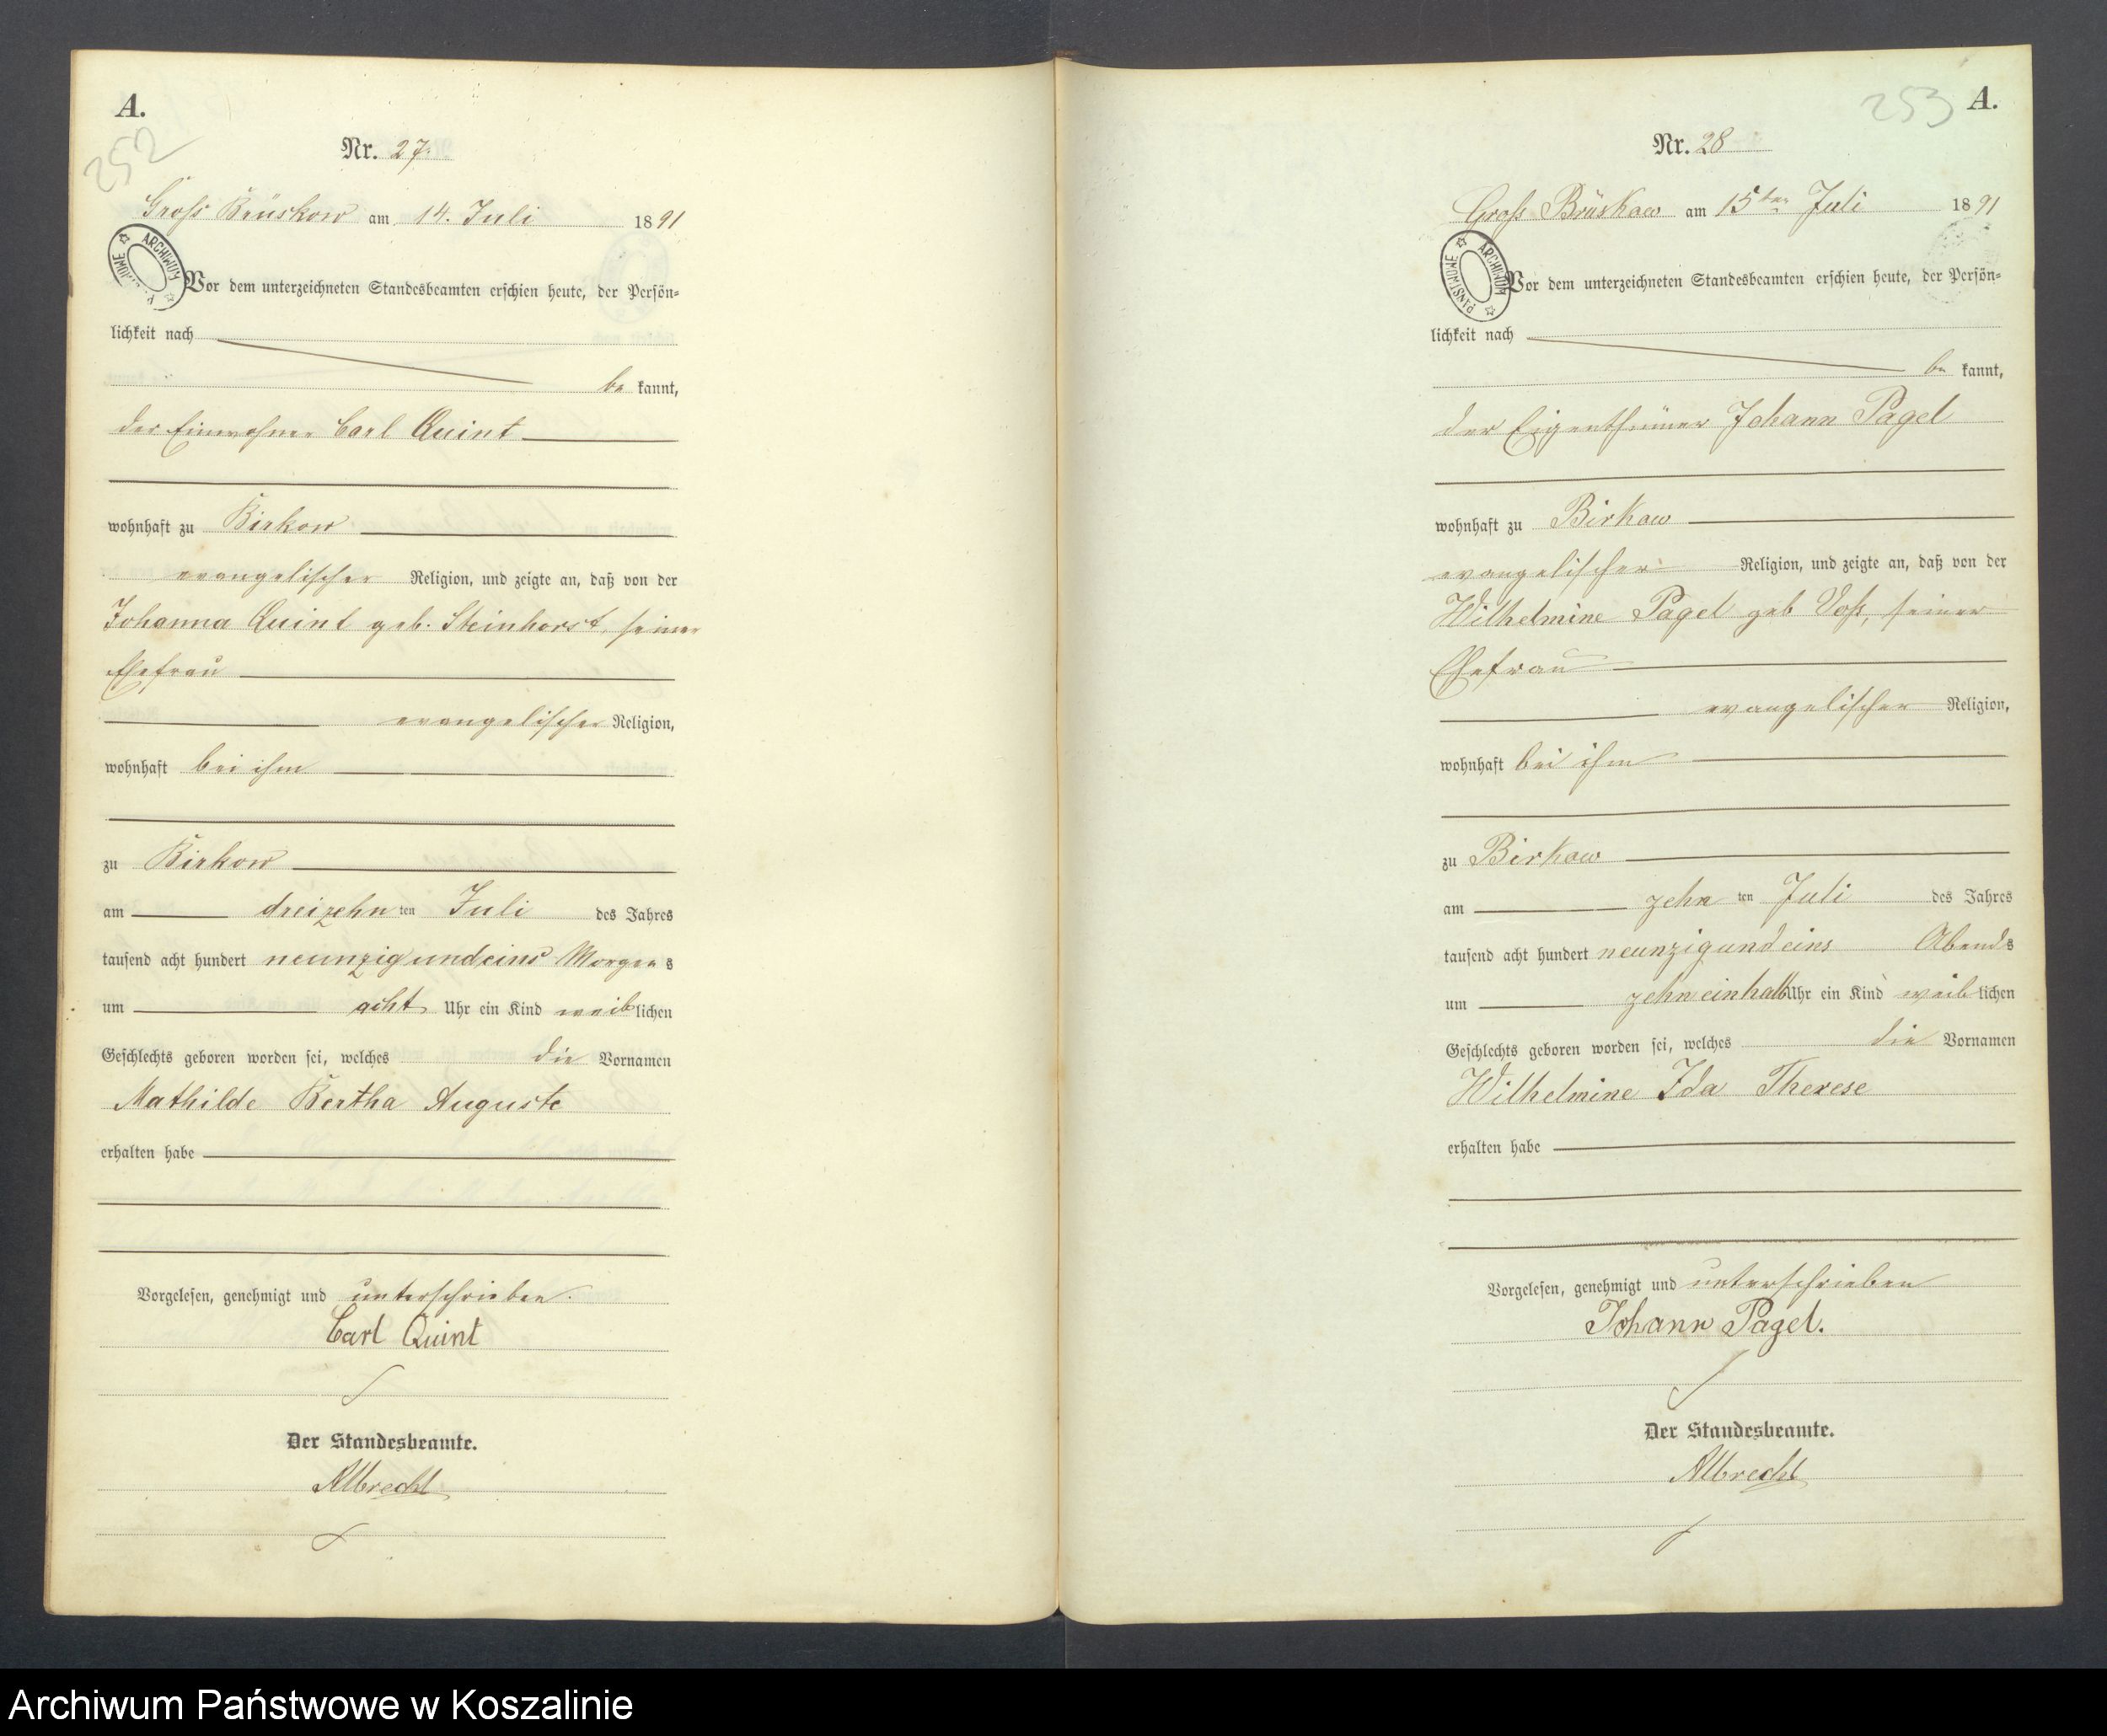 A.
252
Nr. 27.
Gross Brüskow am 14. Juli 1891
ARCHIWUM
Vor dem unterzeichneten Standesbeamten erschien heute, der Persön=
lichkeit nach
be kannt,
der Einwohner Carl Quint
wohnhaft zu Birkow
evangelischer Religion, und zeigte an, daß von der
Johanna Quint geb. Steinhorst, seiner
Ehefrau
evangelischer Religion,
wohnhaft bei ihm
zu Birkow
am dreizehn ten Juli des Jahres
tausend acht hundert neunzig und eins Morgens
um acht Uhr ein Kind weiblichen
Geschlechts geboren worden sei, welches die Vornamen
Mathilde Bertha Auguste
erhalten habe
Vorgelesen, genehmigt und unterschrieben.
Carl Quint
Der Standesbeamte.
Albrecht
253
A.
Nr. 28
Gross Brüskow am 15ten Juli 1891
ARCHIWUM PAŃSTWOWE
Vor dem unterzeichneten Standesbeamten erschien heute, der Persön=
lichkeit nach
be kannt,
der Eigenthümer Johann Pagel
wohnhaft zu Birkow
evangelischer Religion, und zeigte an, daß von der
Wilhelmine Pagel geb Voß, seiner
Ehefrau
evangelischer Religion,
wohnhaft bei ihm
zu Birkow
am zehn ten Juli des Jahres
tausend acht hundert neunzig und eins Abends
um zehneinhalb Uhr ein Kind weiblichen
Geschlechts geboren worden sei, welches die Vornamen
Wilhelmine Ida Therese
erhalten habe
Vorgelesen, genehmigt und unterschrieben
Johann Pagel.
Der Standesbeamte.
Albrecht
Archiwum Państwowe w Koszalinie